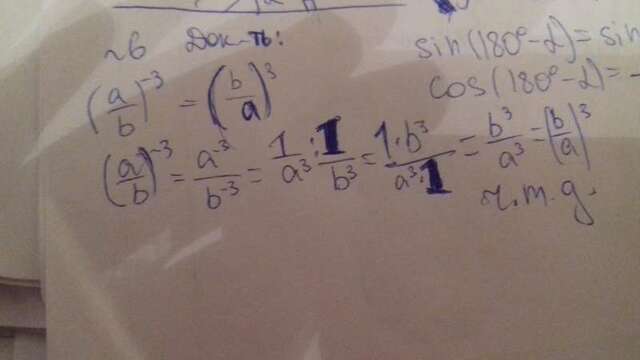 №6 Док-ть:
(a/b)^-3 = (b/a)^3
(a/b)^-3 = a^-3/b^-3 = 1/a^3 : 1/b^3 = 1·b^3/a^3·1 = b^3/a^3 = (b/a)^3
ч.т.д.
sin(180°-α)=sin
cos(180°-α)=-